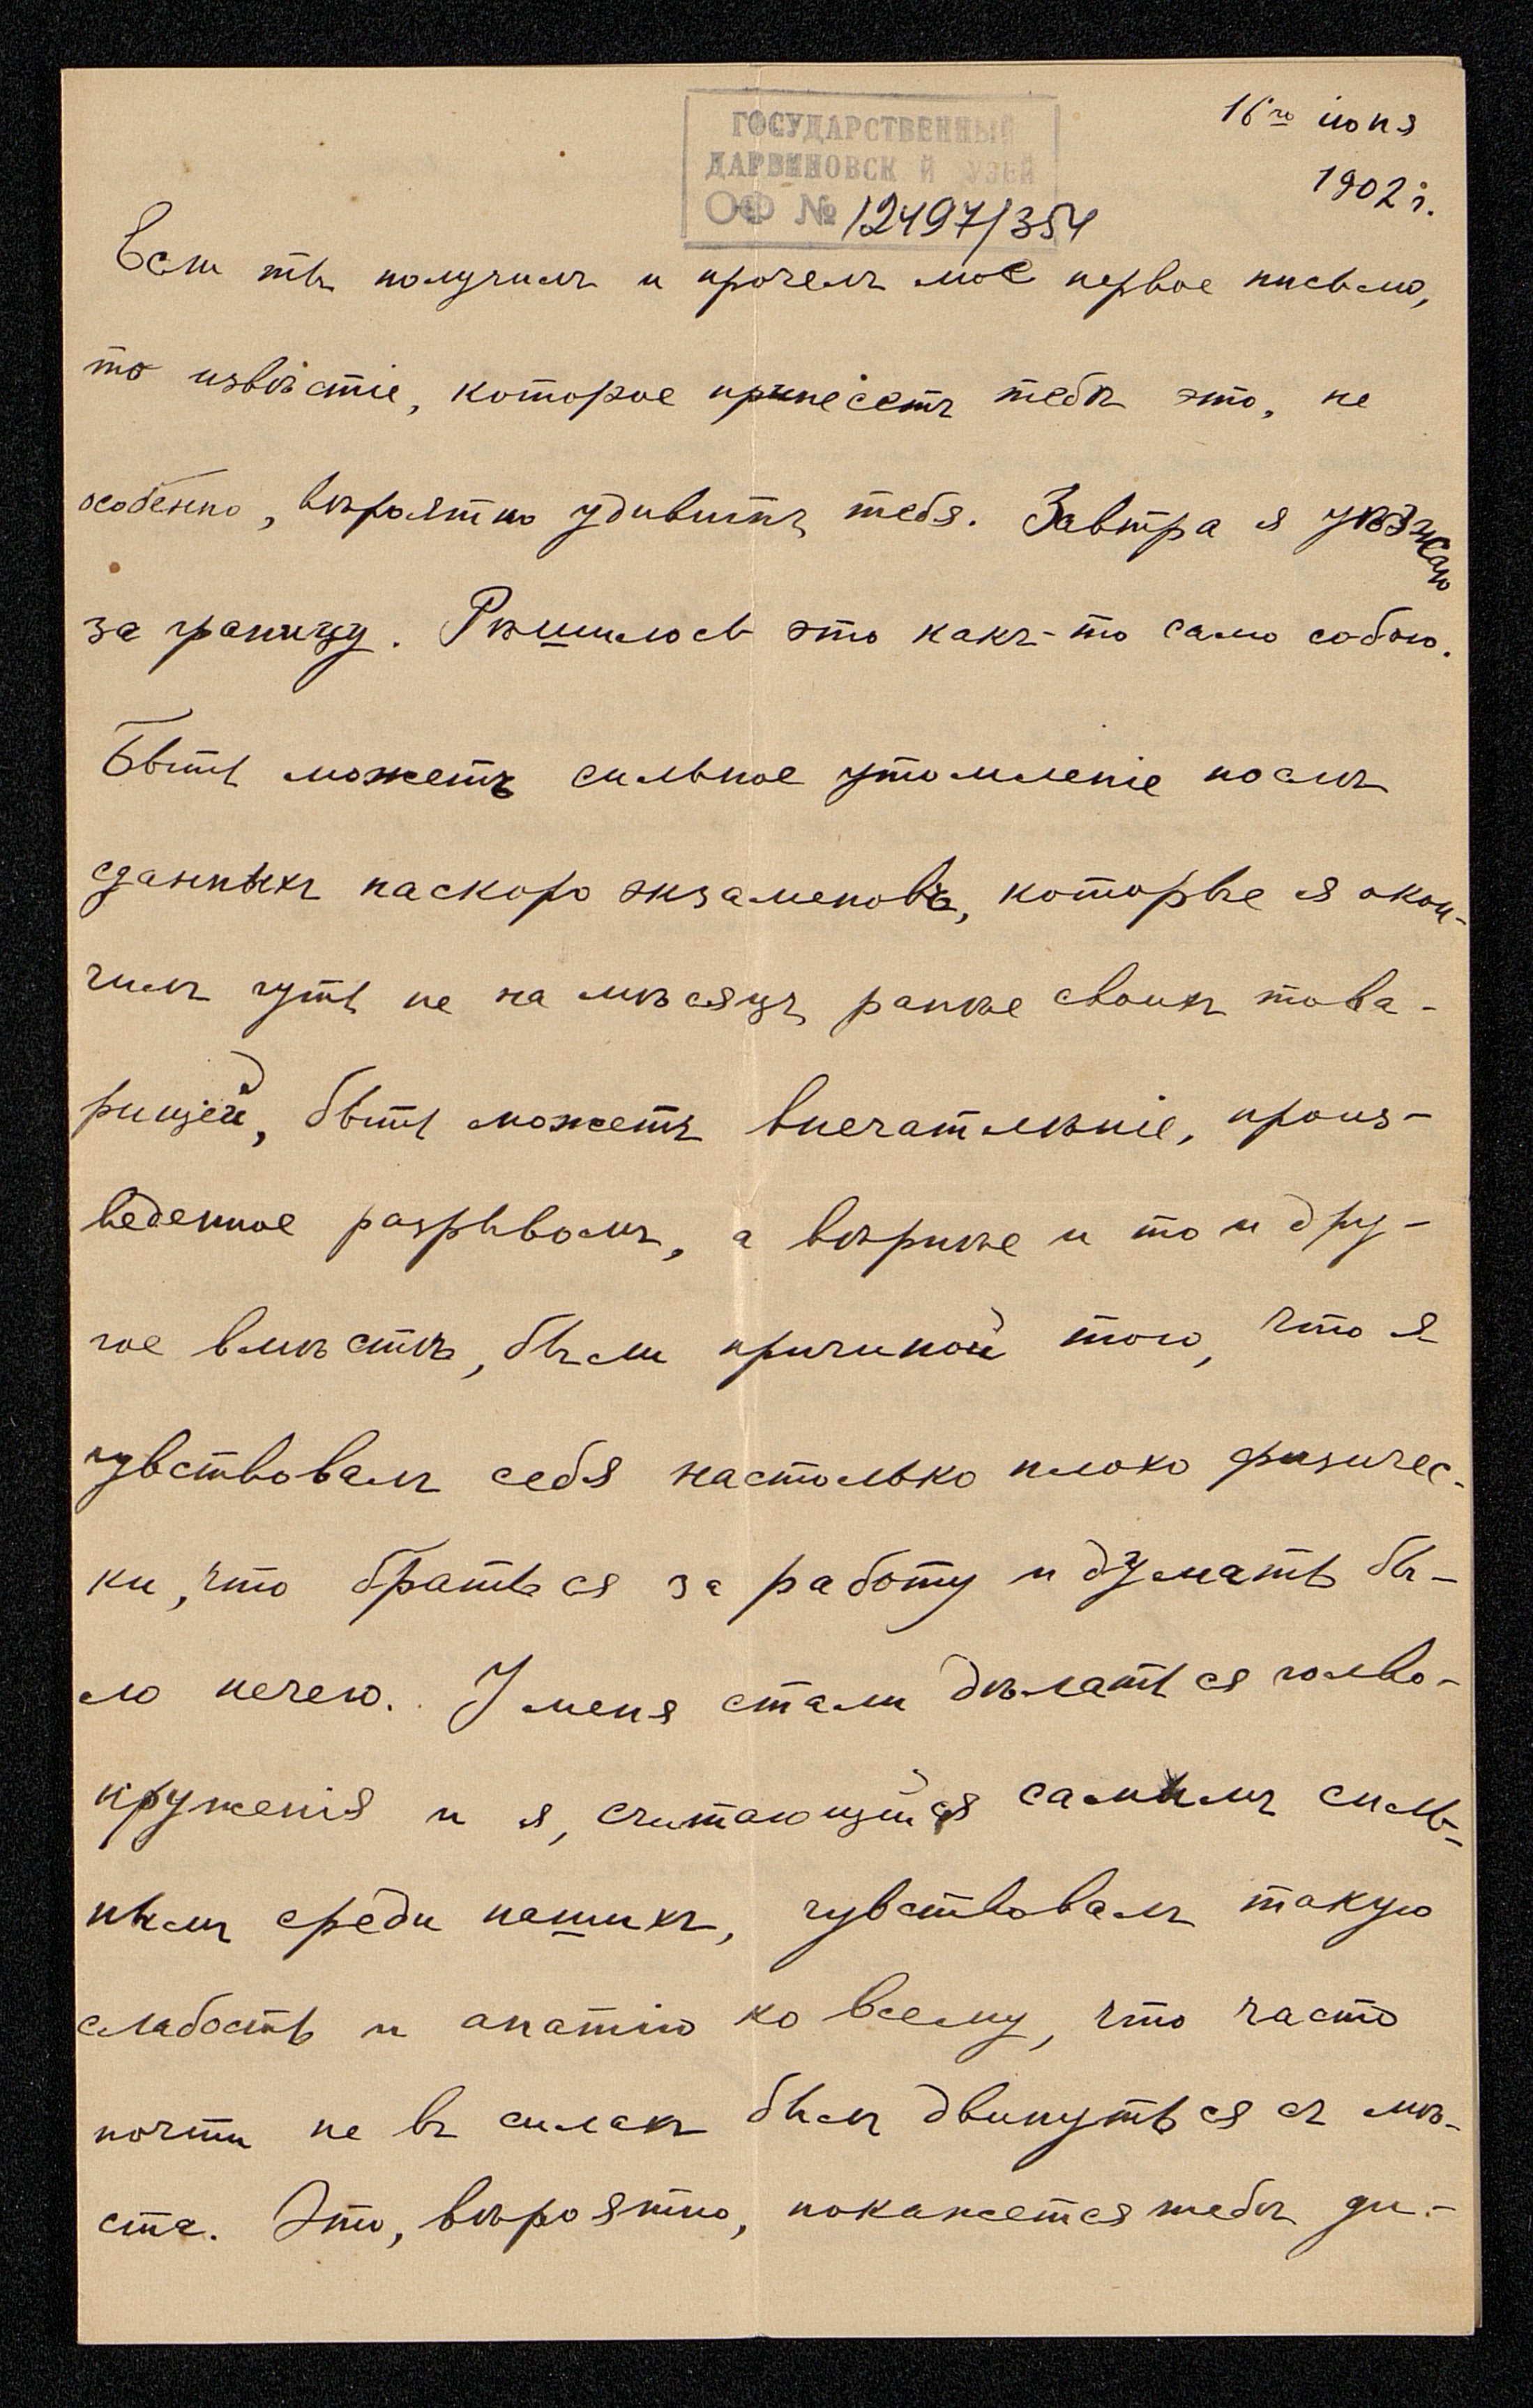 16го іюня
1902 г.
ГОСУДАРСТВЕННЫЙ
ДАРВИНОВСК Й УЗЕЙ
ОФ № 12497/354
Если ты получилъ и прочелъ мое первое письмо,
то извѣстіе, которое принесетъ тебѣ это, не
особенно, вѣроятно удивитъ тебя. Завтра я уѣзжаю
за границу. Рѣшилось это какъ-то само собою.
Быть можетъ сильное утомленіе послѣ
сданныхъ наскоро экзаменовъ, которые я окон-
чилъ чуть не на мѣсяцъ ранѣе своихъ това-
рищей, быть можетъ впечатлѣніе, произ-
веденное разрывомъ, а вѣрнѣе и то и дру-
гое вмѣстѣ, были причиной того, что я
чувствовалъ себя настолько плохо физичес-
ки, что браться за работу и думать бы-
ло нечего. У меня стали дѣлаться голво-
круженія и я, считающійся самымъ силь-
нымъ среди нашихъ, чувствовалъ такую
слабость и апатію ко всему, что часто
почти не въ силахъ былъ двинуться съ мѣ-
ста. Это, вѣроятно, покажется тебѣ ди-